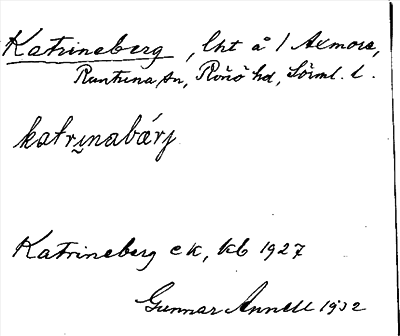 Katrineberg, lht å 1 Axmora,
Runtuna sn, Rönö hd, Sörml. l.
katrinabærj
Katrineberg ek, kb 1927
Gunnar Annell 1932